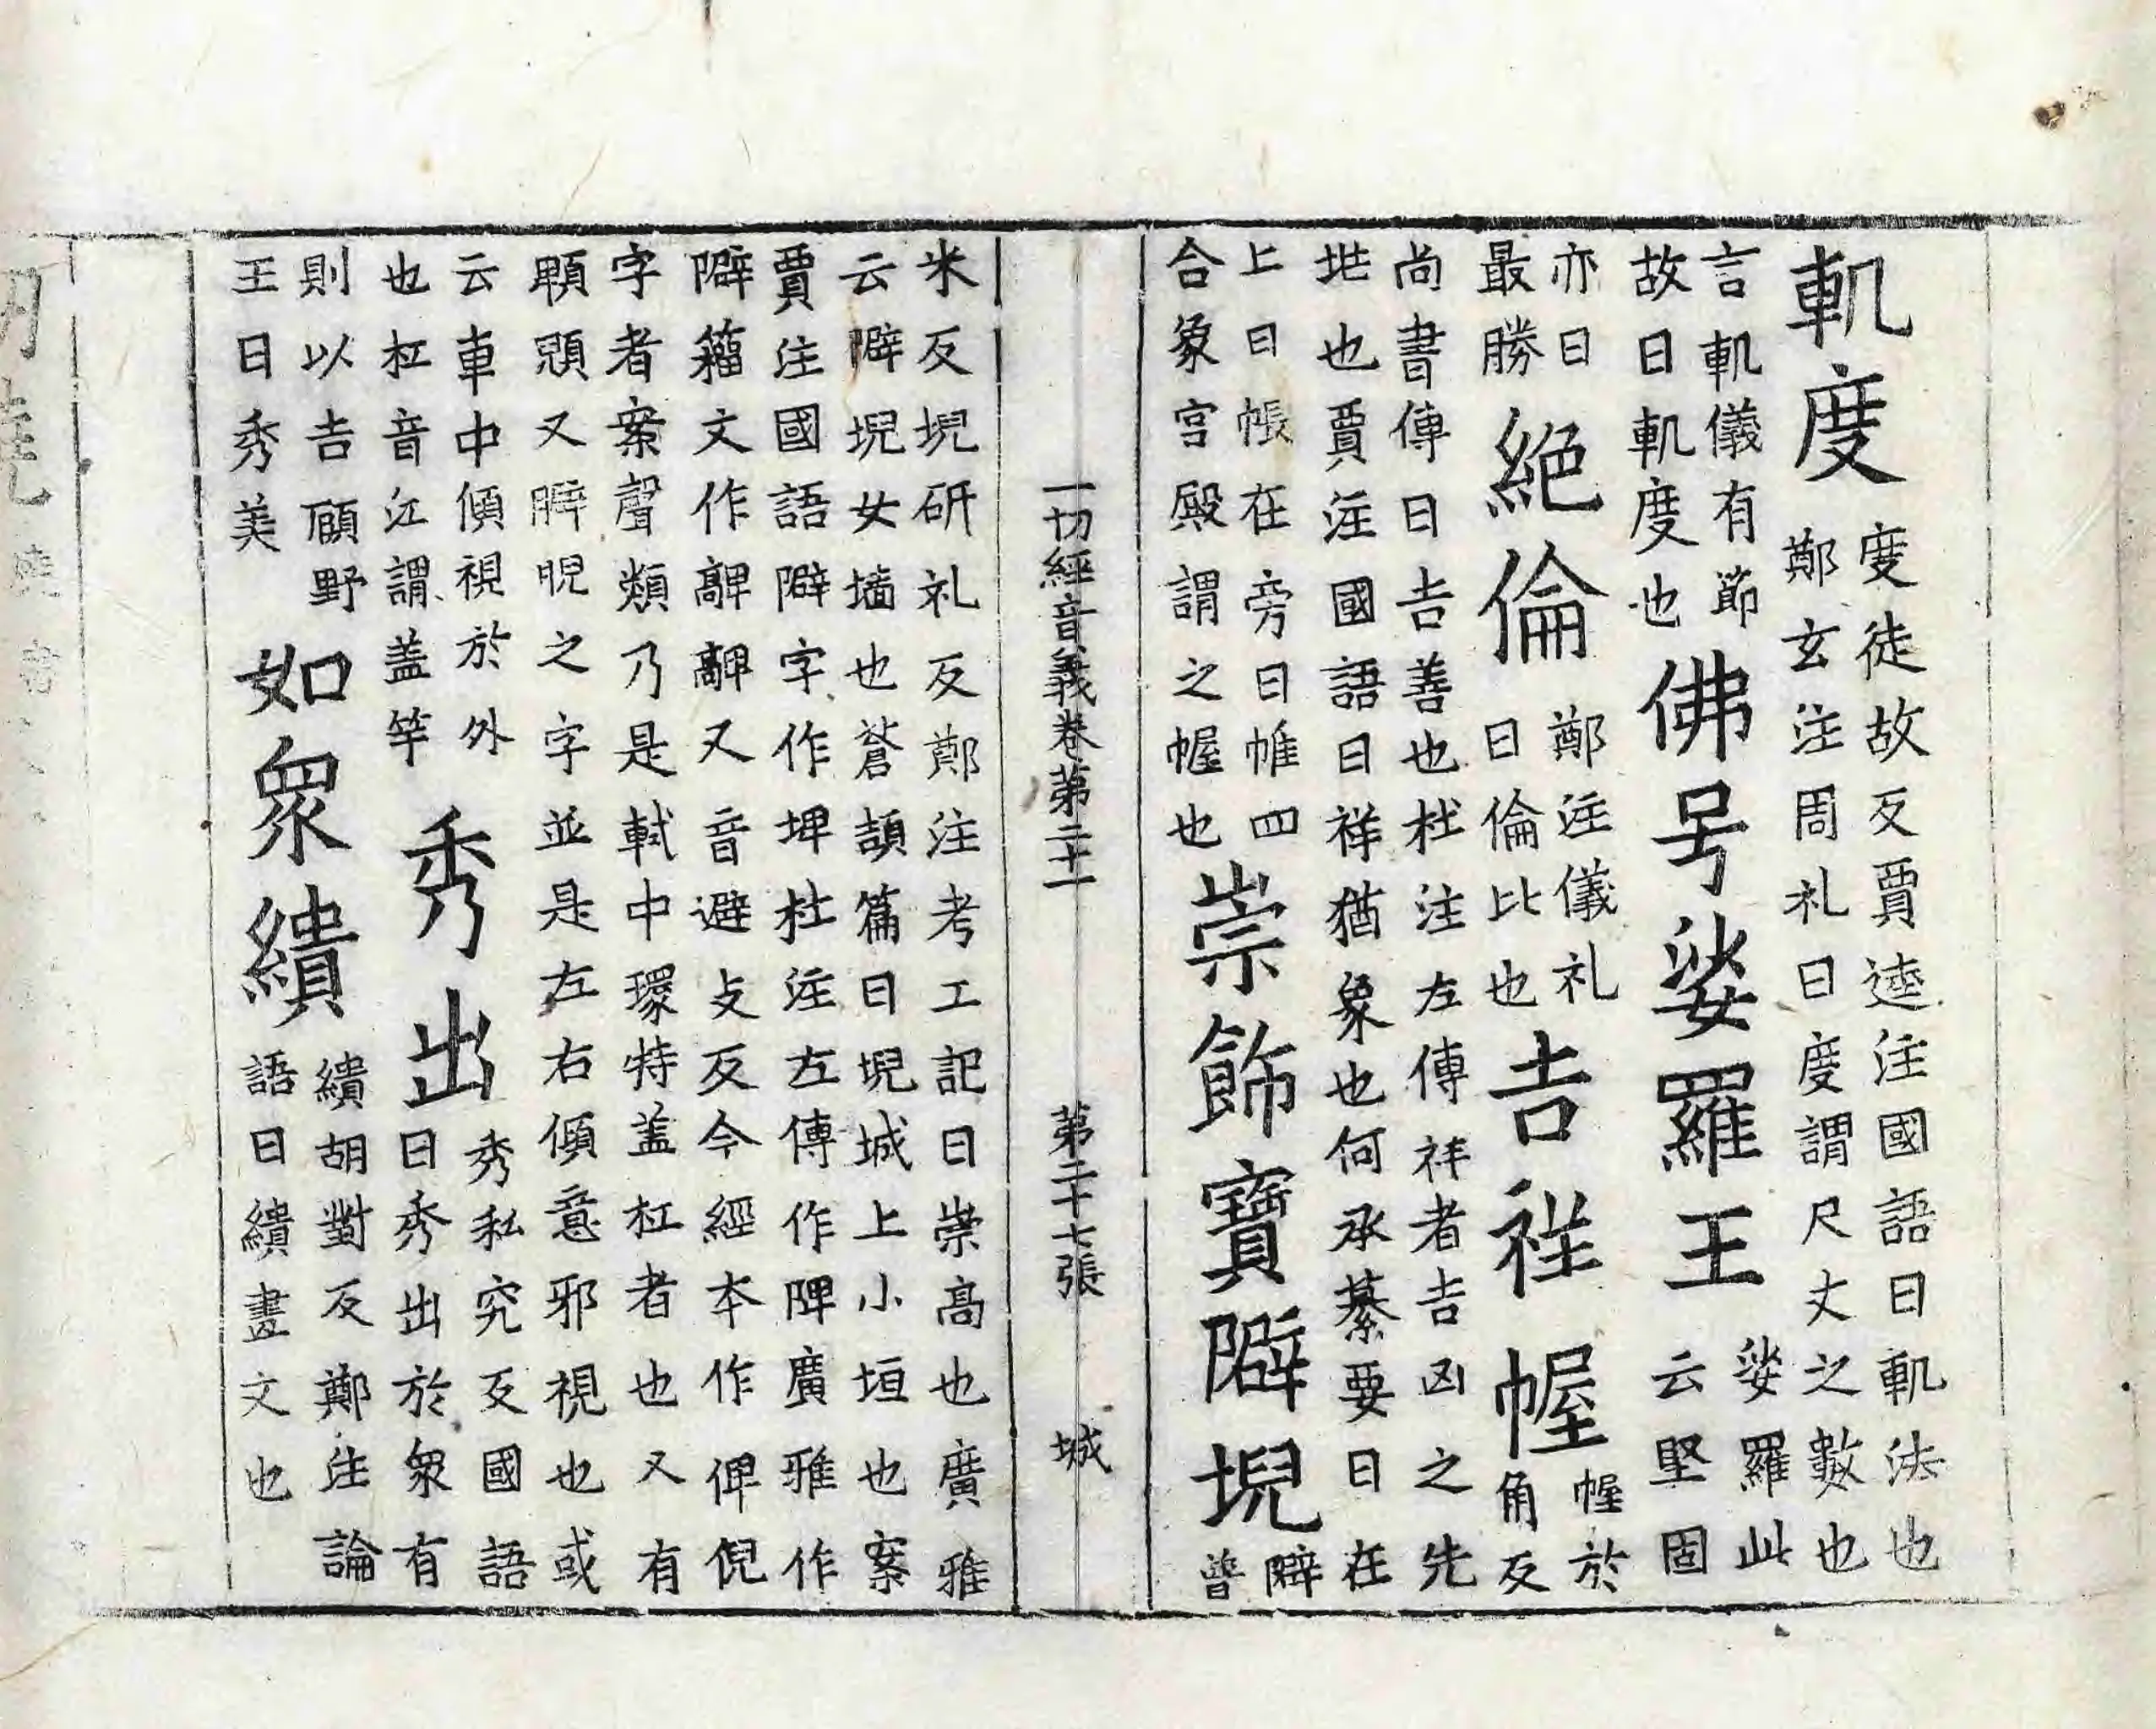 軌度
度徒故反賈逵注國語曰軌法也
鄭玄注周礼曰度謂尺丈之數也
言軌儀有節
故曰軌度也
佛号娑羅王
娑羅此
云堅固
亦曰
最勝
絶倫
鄭注儀礼
曰倫比也
吉祥
幄
幄於
角反
尚書傳曰吉善也杜注左傳祥者吉凶之先
兆也賈注國語曰祥猶象也何承纂要曰在
上曰帳在旁曰帷四
合象宮殿謂之幄也
崇飾寶隦堄
隦
普
一切經音義卷第二十一 第二十七張 城
米反堄研礼反鄭注考工記曰崇高也廣雅
云隦堄女墻也蒼頡篇曰堄城上小垣也案
賈注國語隦字作埤杜注左傳作陴廣雅作
隦籀文作又音避攴反今經本作俾倪
字者案聲類乃是軾中環持盖杠者也又有
又睥睨之字並是左右傾意邪視也或
云車中傾視於外
也杠音江謂盖竿
秀出
秀私究反國語
曰秀出於衆有
則以吉顧野
王曰秀美
如衆繢
繢胡對反鄭注論
語曰繢畫文也